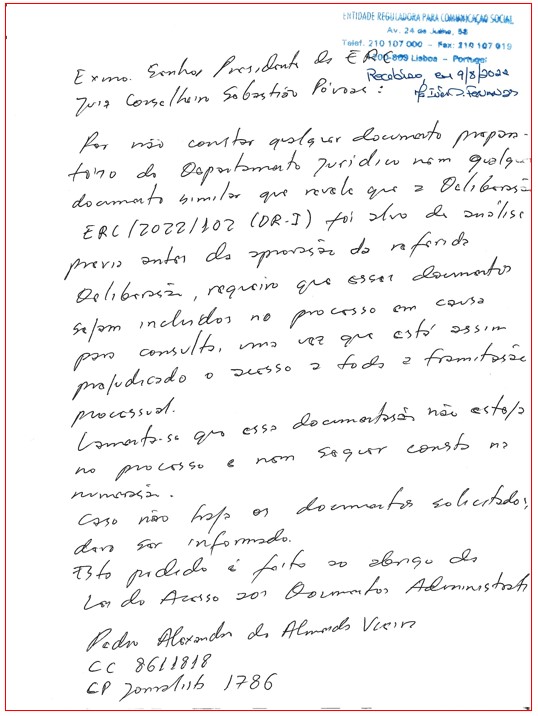 ENTIDADE REGULADORA PARA COMUNICAÇÃO SOCIAL
Av. 24 de Julho, 58
Telef. 210 107 000 - Fax: 210 107 019
1200-869 Lisboa - Portugal
Recebido em 9/8/2022
Exmo. Senhor Presidente da ERC
Juiz Conselheiro Sebastião Póvoas:
Por não constar qualquer documento prepara-
tório do Departamento Jurídico nem qualquer
documento similar que revele que a Deliberação
ERC/2022/102 (DR-I) foi alvo de análise
prévia antes da aprovação da referida
Deliberação, requeiro que esses documentos
sejam incluídos no processo em causa
para consulta, uma vez que está assim
prejudicado o acesso a toda a tramitação
processual.
Lamenta-se que essa documentação não esteja
no processo e nem sequer consta na
numeração.
Caso não haja os documentos solicitados,
devo ser informado.
Este pedido é feito ao abrigo da
Lei do Acesso aos Documentos Administrati
Pedro Alexandre de Almeida Vieira
CC 8611818
CP Jornalista 1786